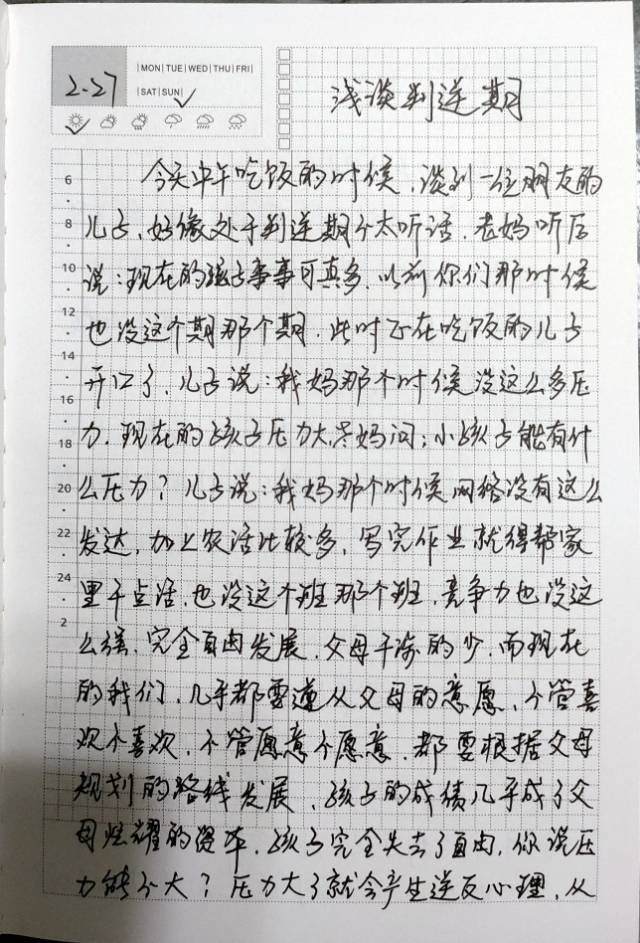 2-27
MON TUE WED THU FRI
SAT SUN
浅谈判逆期
6
8
10
12
14
16
18
20
22
24
2
今天中午吃饭的时候,谈到一位朋友的
儿子,好像处于判逆期不太听话.老妈听后
说:现在的孩子事事可真多.以前你们那时候
也没这个期那个期.此时正在吃饭的儿子
开口了,儿子说:我妈那个时候没这么多压
力.现在的孩子压力大,老妈问:小孩子能有什
么压力?儿子说:我妈那个时候网络没有这么
发达,加上农活比较多,写完作业就得帮家
里干点活,也没这个班那个班,竞争力也没这
么强,完全自由发展,父母干涉的少,而现在
的我们,几乎都要遵从父母的意愿,不管喜
欢不喜欢,不管愿意不愿意,都要根据父母
规划的路线发展,孩子的成绩几乎成了父
母炫耀的资本,孩子完全失去了自由,你说压
力能不大?压力大了就会产生逆反心理,从